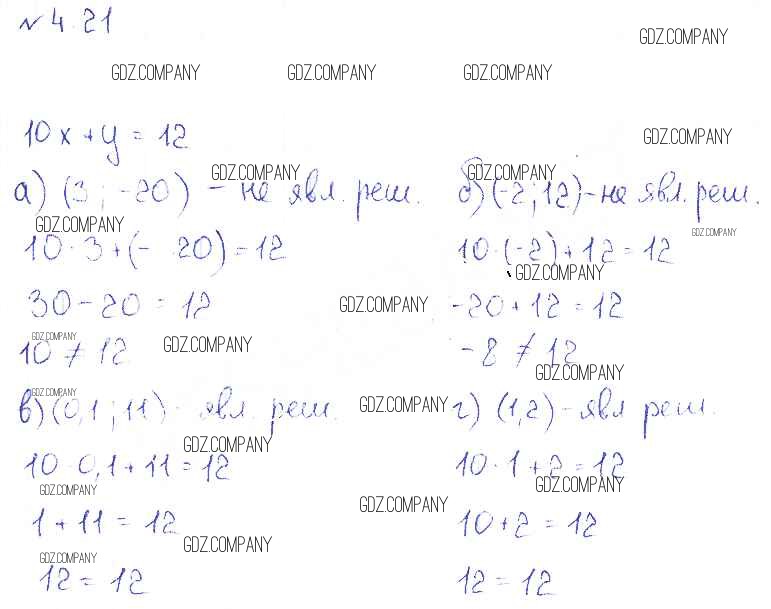 № 4.21
GDZ.COMPANY
GDZ.COMPANY GDZ.COMPANY GDZ.COMPANY
10x + y = 12
GDZ.COMPANY
GDZ.COMPANY GDZ.COMPANY
а) (3; -20) - не явл. реш.
б) (-2; 12) - не явл. реш.
GDZ.COMPANY GDZ.COMPANY
10 · 3 + (- 20) = 12
10 · (-2) + 12 = 12
GDZ.COMPANY
30 - 20 = 12
GDZ.COMPANY
-20 + 12 = 12
GDZ.COMPANY GDZ.COMPANY
10 ≠ 12
-8 ≠ 12
GDZ.COMPANY
GDZ.COMPANY
в) (0,1; 11) - явл. реш.
GDZ.COMPANY
г) (1,2) - явл реш.
GDZ.COMPANY
10 · 0,1 + 11 = 12
10 · 1 + 2 = 12
GDZ.COMPANY GDZ.COMPANY
GDZ.COMPANY
1 + 11 = 12
10 + 2 = 12
GDZ.COMPANY
GDZ.COMPANY
12 = 12
12 = 12